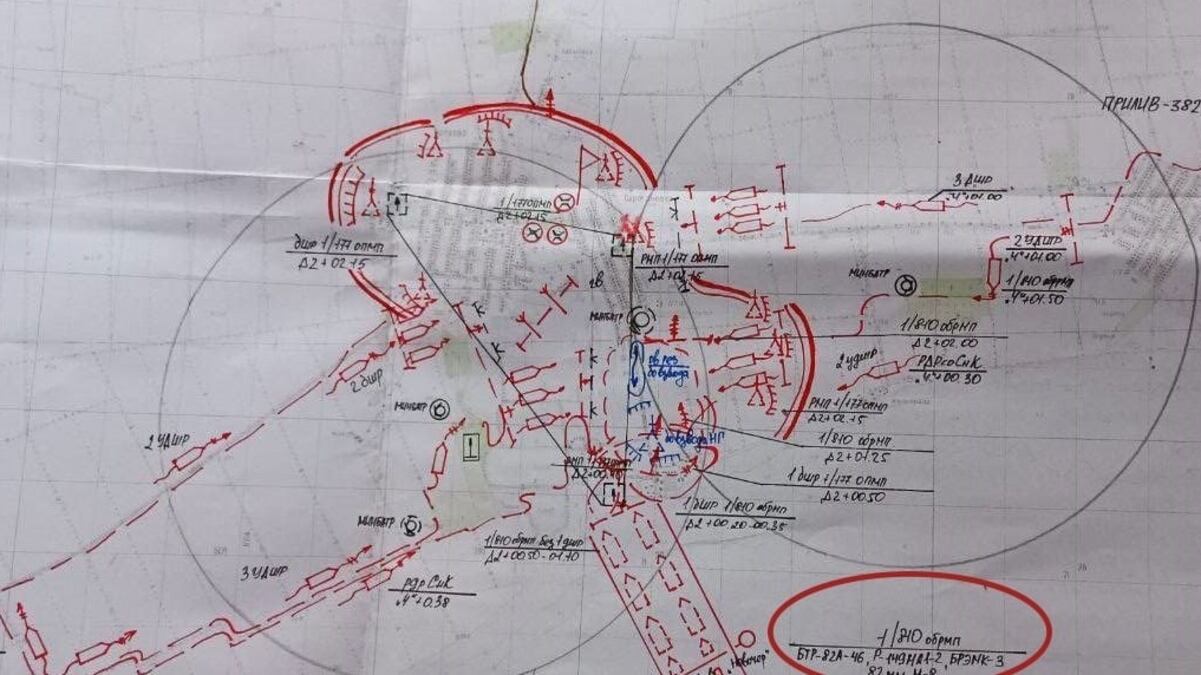 ПРИЛИВ-382
3 ДШР
"Ч"+01.00
1/177 ОПМП
Д2+02.15
ДШР 1/177 ОПМП
Д2+02.15
РМП 1/177 ОПМП
Д2+02.15
2 УДШР
"Ч"+01.00
МИНБАТР
1/810 обрмп
"Ч"+01.50
МИНБАТР
1/810 обрмп
Д2+02.00
2 УДШР
РДРСоСнК
"Ч"+00.30
2 ДШР
МИНБАТР
РМП 1/177 ОПМП
Д2+02.15
2 УДШР
1/810 обрмп
Д2+01.25
1 ДШР 1/177 ОПМП
Д2+00.50
МИНБАТР
1 ДШР 1/810 обрмп
Д2+00.20-00.35
1/810 обрмп без 1 дшр
Д2+00.50-01.10
3 УДШР
РДР СнК
"Ч"+0.38
1/810 обрмп
БТР-82А-46, Р-149МА1-2, БРЭМК-3